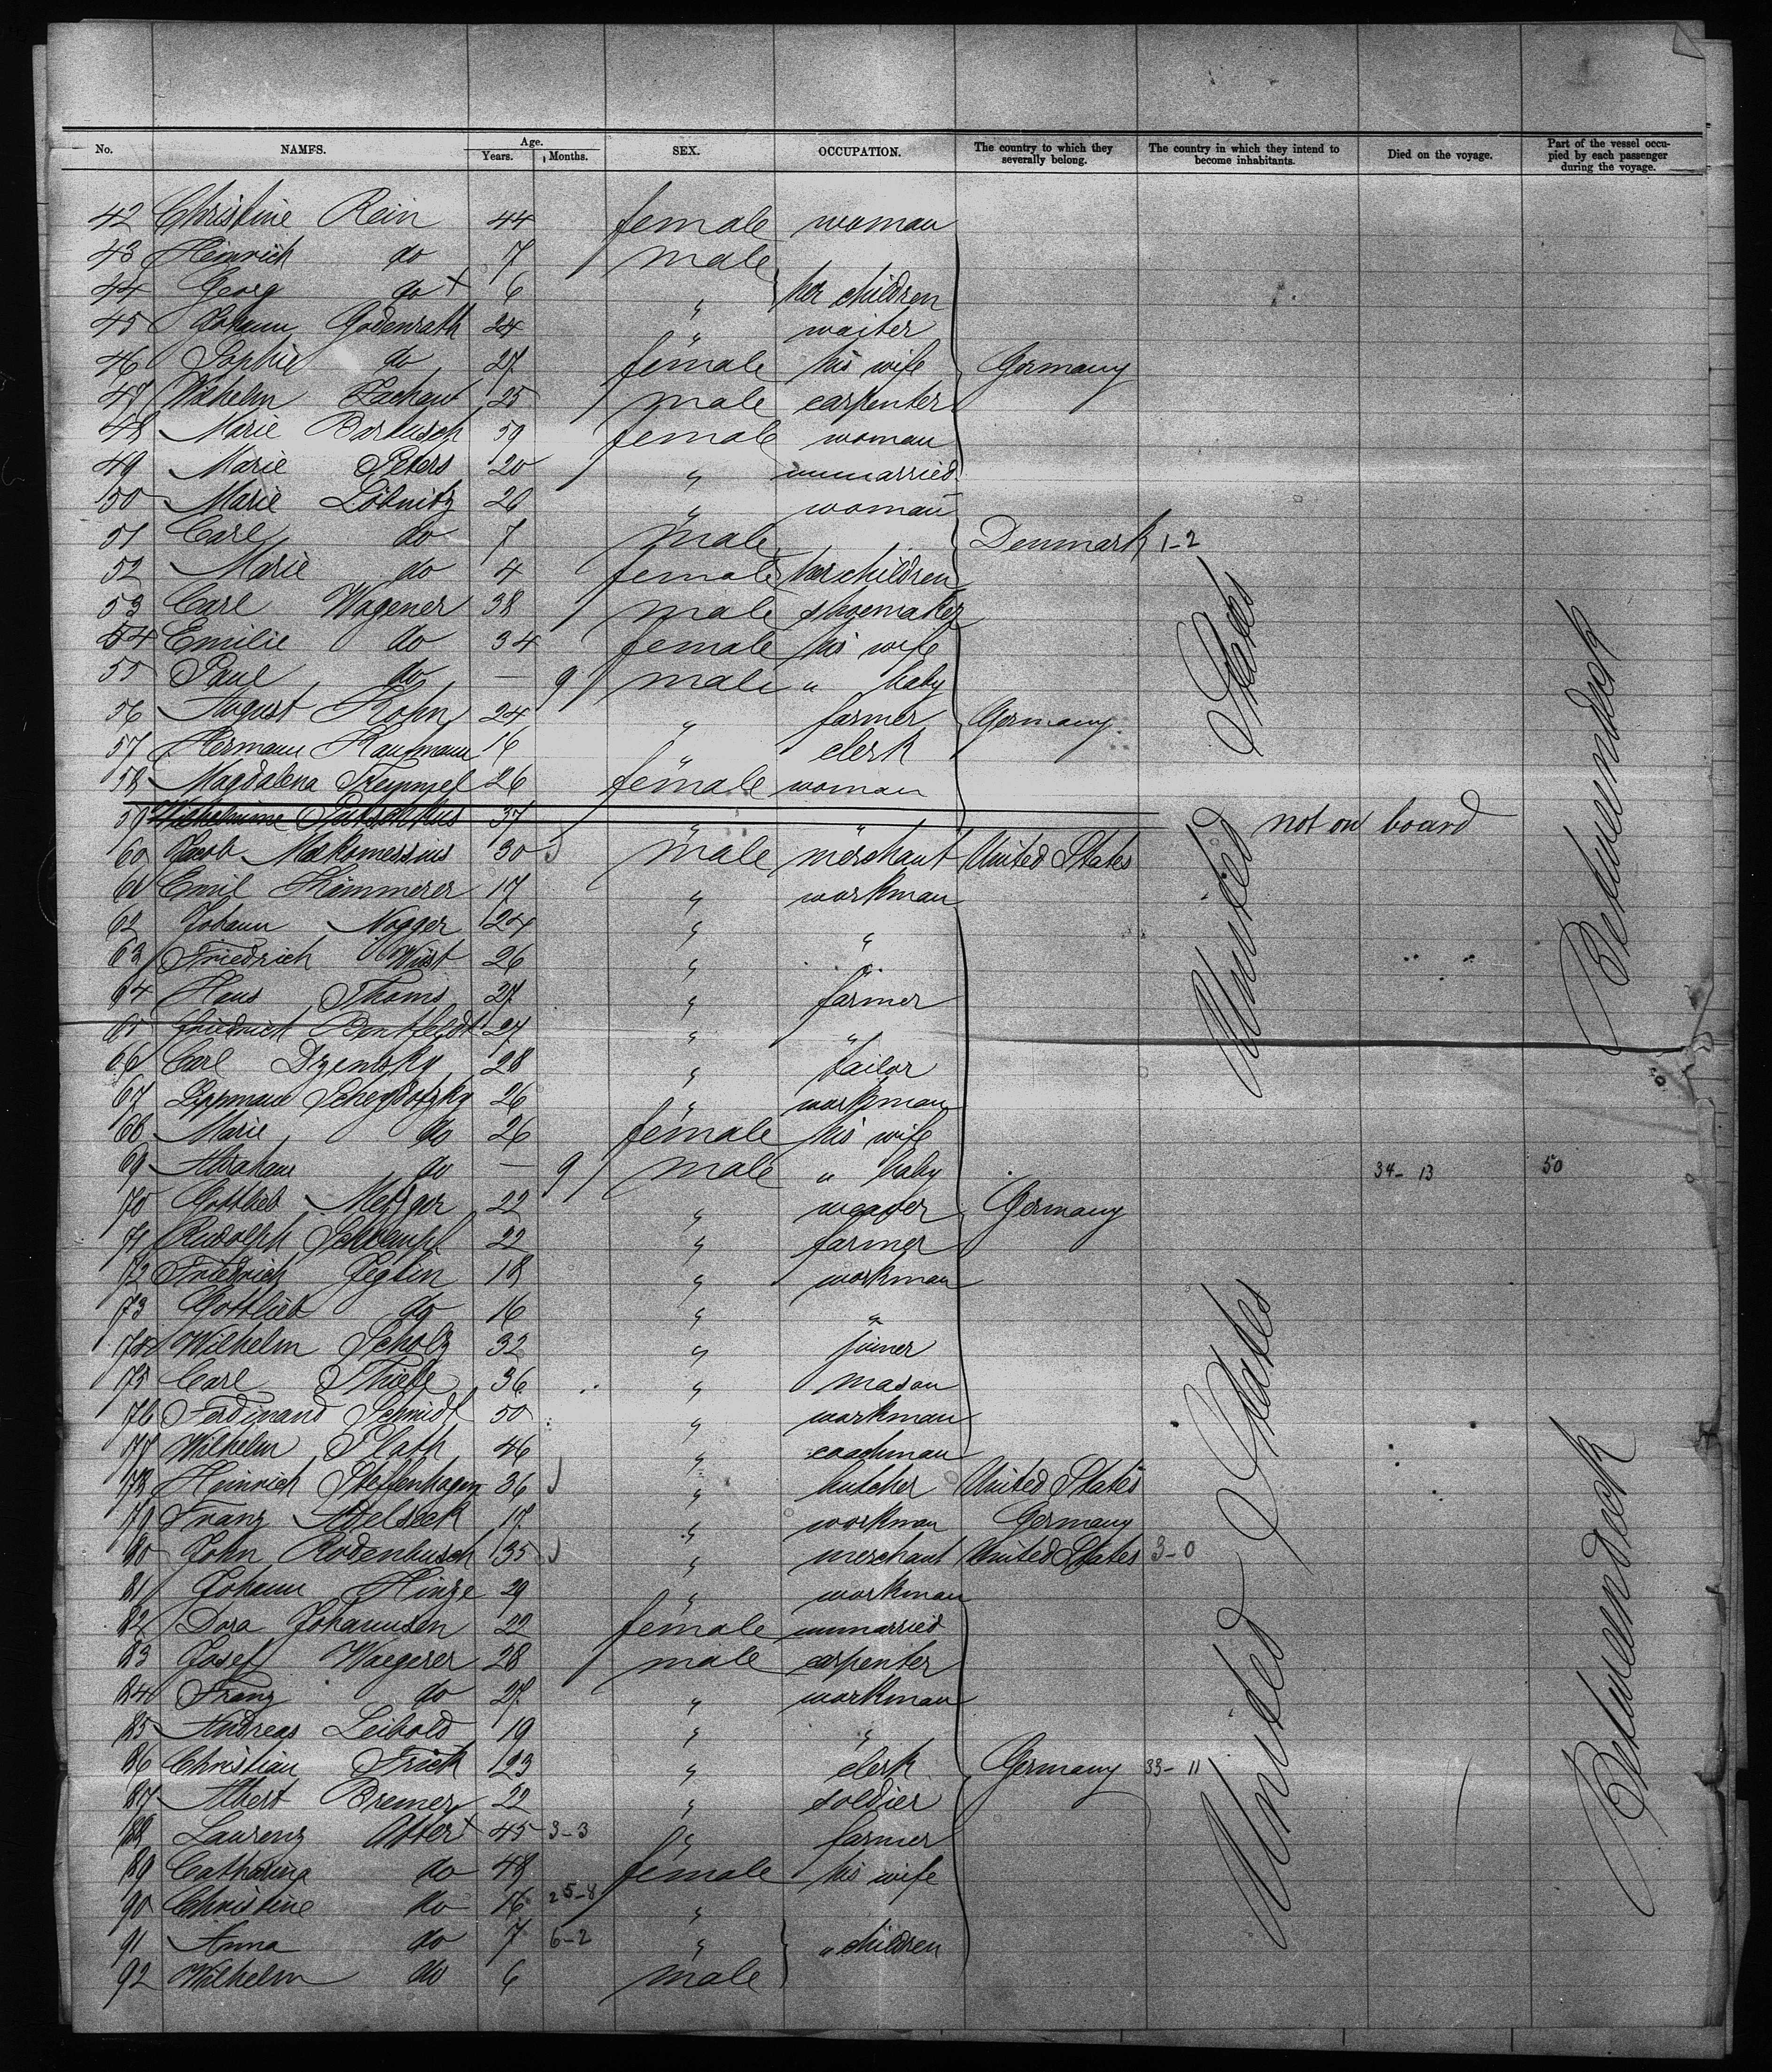 No. NAMES. Age. Years. Months. SEX. OCCUPATION. The country to which they severally belong. The country in which they intend to become inhabitants. Died on the voyage. Part of the vessel occupied by each passenger during the voyage.
42 Christine Rein 44 female woman
43 Heinrich do 7 male
44 Georg do + 6 " her children
45 Johann Godenrath 24 " waiter
46 Sophie do 27 female his wife Germany
47 Wilhelm Zachau 25 male carpenter
48 Marie Bartusch 59 female woman
49 Marie Peters 20 " unmarried
50 Marie Löbnitz 26 " woman
51 Carl do 7 male Denmark 1-2
52 Marie do 4 female her children
53 Carl Wagener 38 male shoemaker
54 Emilie do 34 female his wife
55 Paul do — 9 male " baby
56 August Kohn 24 " farmer Germany
57 Hermann Kaufmann 16 " clerk
58 Magdalena 26 female woman
59 Wilhelmine 37 " " not on board
60 Jacob Makomessius 30 male merchant United States
61 Emil Kämmerer 17 " workman
62 Johann Nogger 24 " "
63 Friedrich Wüst 26 " "
64 Hans Thoms 27 " farmer
65 Friedrich Bentfeldt 27 " "
66 Carl Dzembsky 28 " tailor
67 Lippman 26 " workman
68 Marie do 26 female his wife
69 Abraham do — 9 male " baby 34- 13 50
70 Gottlieb Metzger 22 " weaver Germany
71 Rudolph Schrempf 22 " farmer
72 Friedrich Jeglin 18 " workman
73 Gottlieb do 16 " "
74 Wilhelm Scholz 32 " joiner
75 Carl Thiele 36 " mason
76 Ferdinand Schmidt 50 " workman
77 Wilhelm Plath 46 " coachman
78 Heinrich Steffenhagen 36 " butcher United States
79 Franz Adelseck 17 " workman Germany
80 John Rodenbusch 35 " merchant United States 3-0
81 Johann Hinze 29 " workman
82 Dora Johannsen 22 female unmarried
83 Josef Waegerer 28 male carpenter
84 Franz do 27 " workman
85 Andreas Leibold 19 " "
86 Christian Frick 23 " clerk Germany 33- 11
87 Albert Bremer 22 " soldier
88 Laurenz Otter + 45 3-3 " farmer
89 Catharina do 48 female his wife
90 Christine do 16 25-8 "
91 Anna do 7 6-2 " " children
92 Wilhelm do 6 male
United States
United States
Betweendeck
Betweendeck